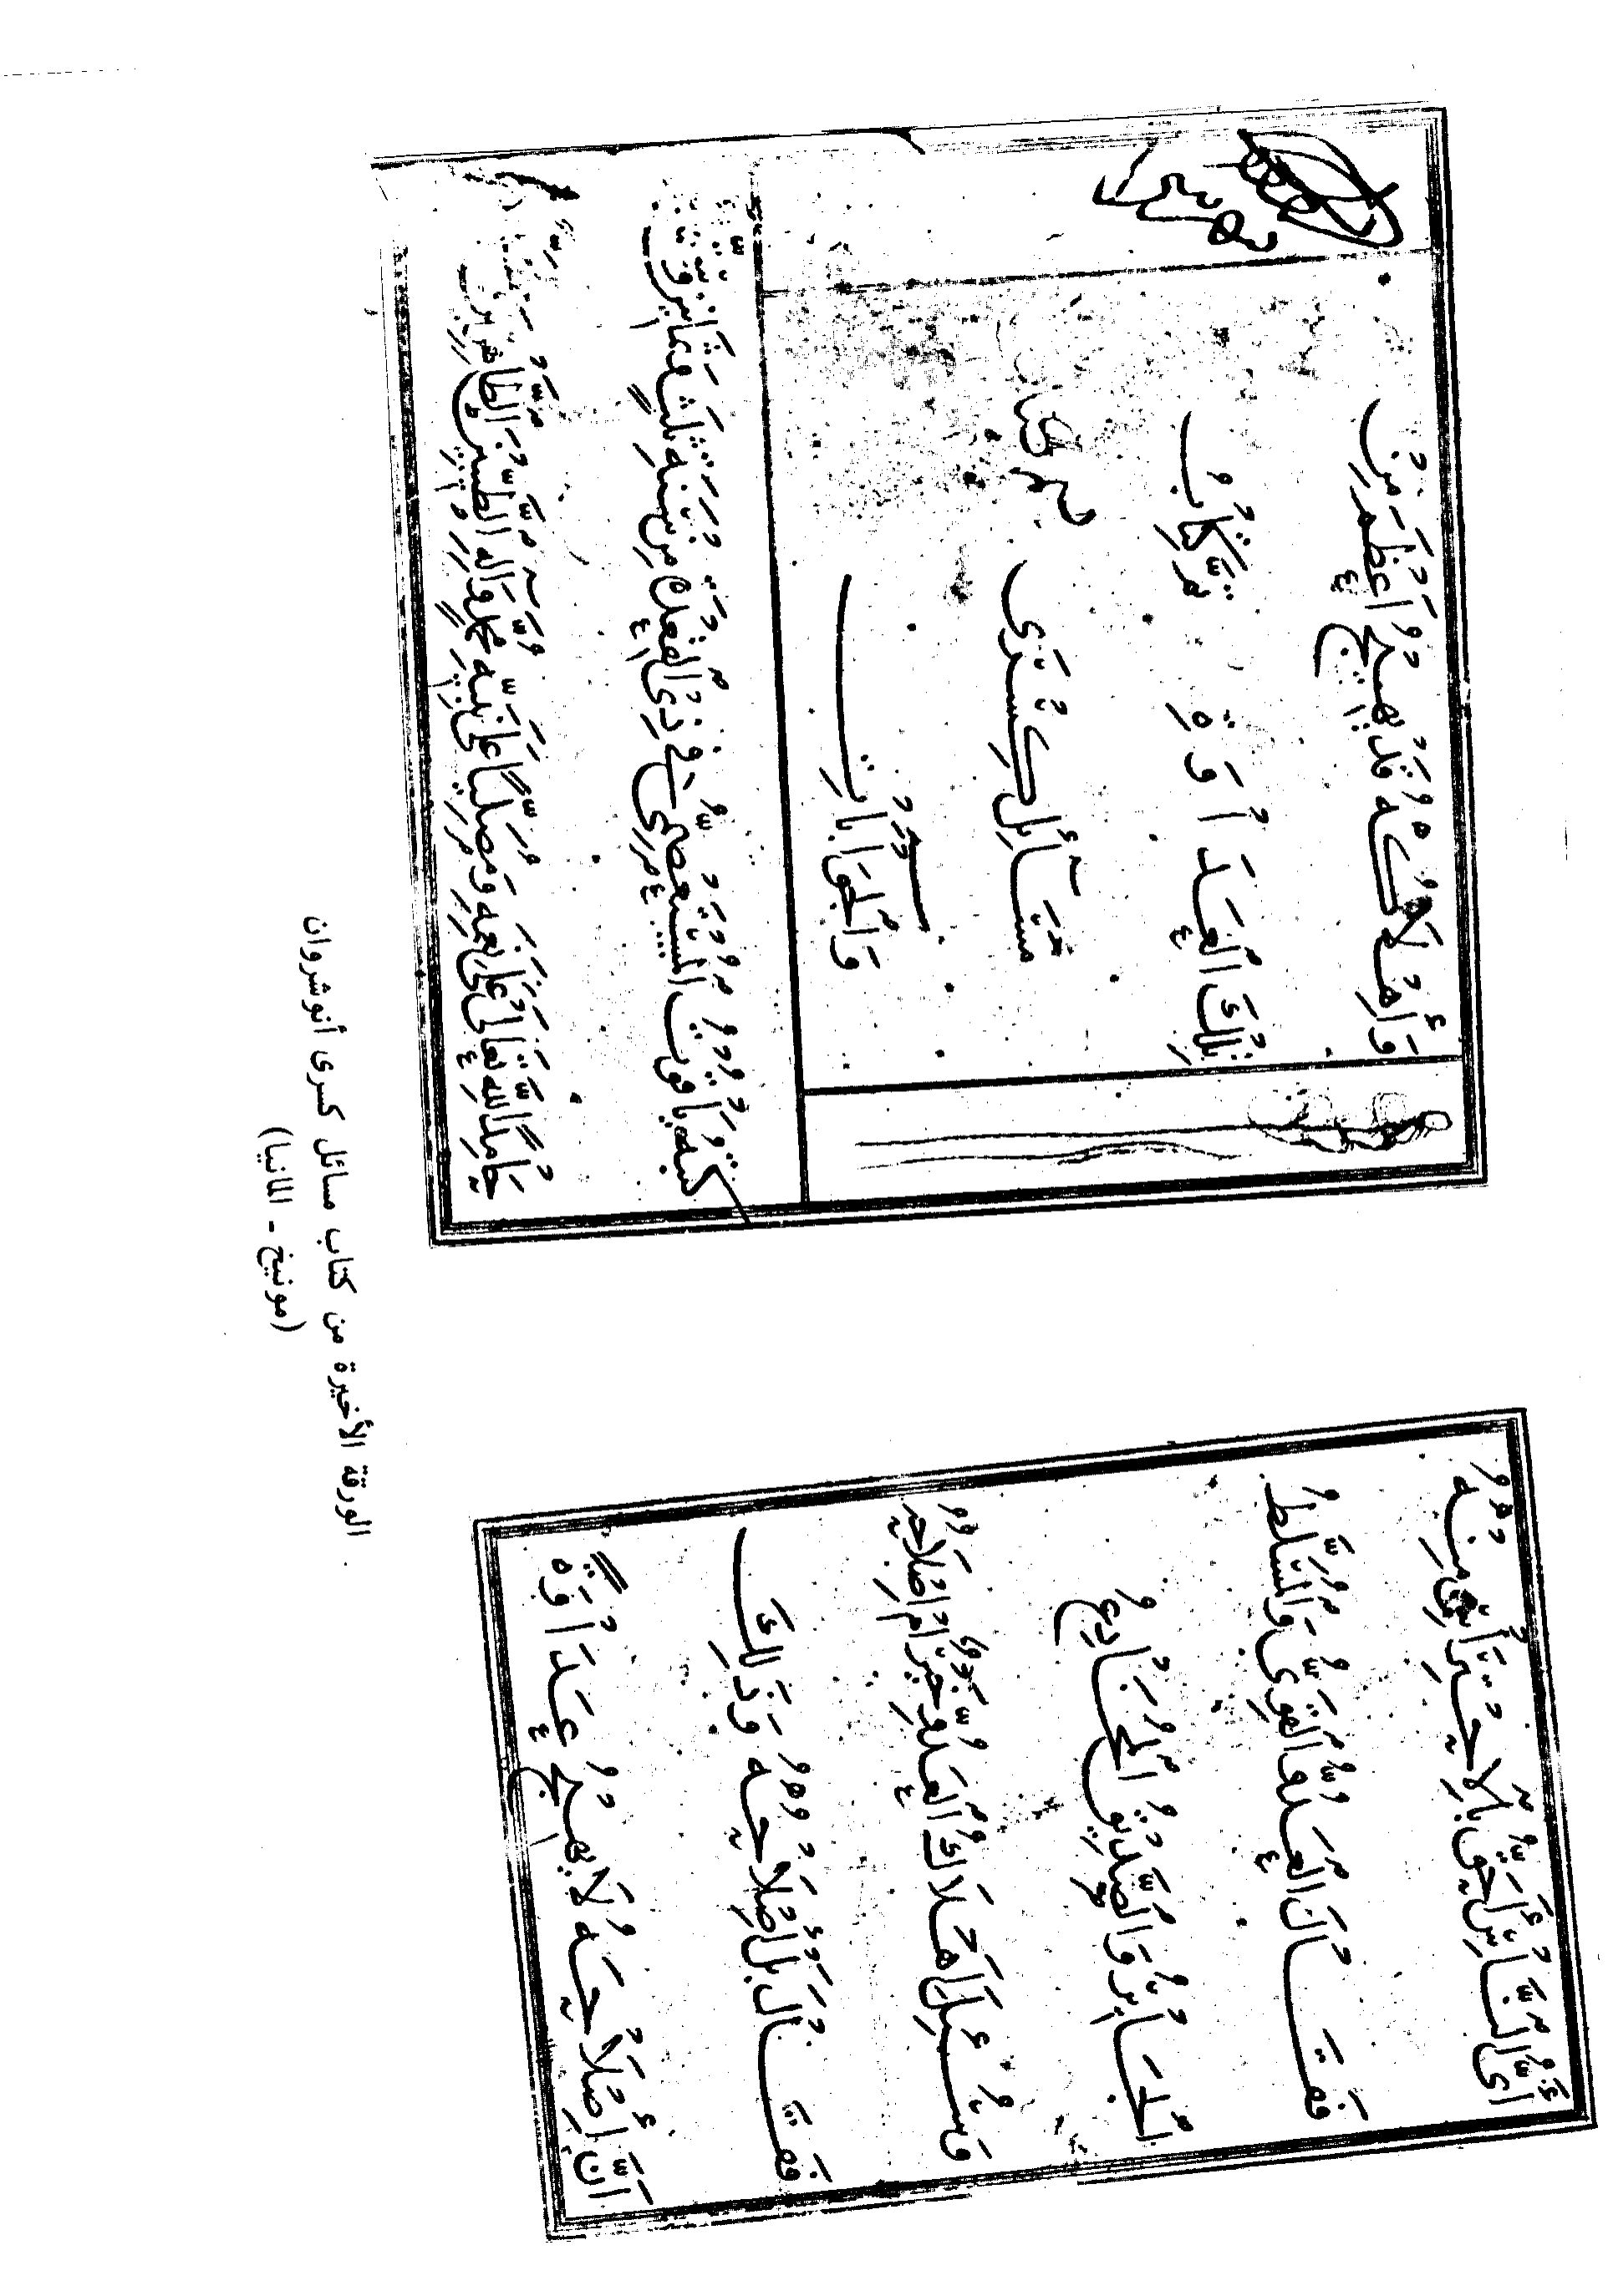 أَيُّ النَّاسِ أَحَقُّ بِالْاحْتِرَاسِ مِنْهُ
فَقَالَ الْعَدُوُّ الْقَوِيُّ وَالْمُسَلَّطُ
الْجَائِرُ وَالصَّدِيقُ الْمُخَادِعُ
وَسُئِلَ هَلَاكُ الْعَدُوِّ خَيْرٌ أَمْ إِصْلَاحُهُ
فَقَالَ بَلْ إِصْلَاحُهُ وَذَلِكَ
أَنَّ إِصْلَاحَهُ لَا يُهَيِّجُ عَدَاوَةً
وَإِهْلَاكُهُ قَدْ يُهَيِّجُ أَعْظَمَ مِنْ
تِلْكَ الْعَدَاوَةِ تَمَّ كِتَابُ
مَسَائِلِ كِسْرَى
وَالْجَوَابَاتِ
كتبه ياقوت المستعصمي في ذي القعدة من سنة ثلث وثمانين وستمائة
حامدا لله تعالى على نعمه ومصليا على نبيه محمد وآله الطيبين الطاهرين ومسلما
الورقة الأخيرة من كتاب مسائل كسرى أنوشروان
(مونيخ - المانيا)